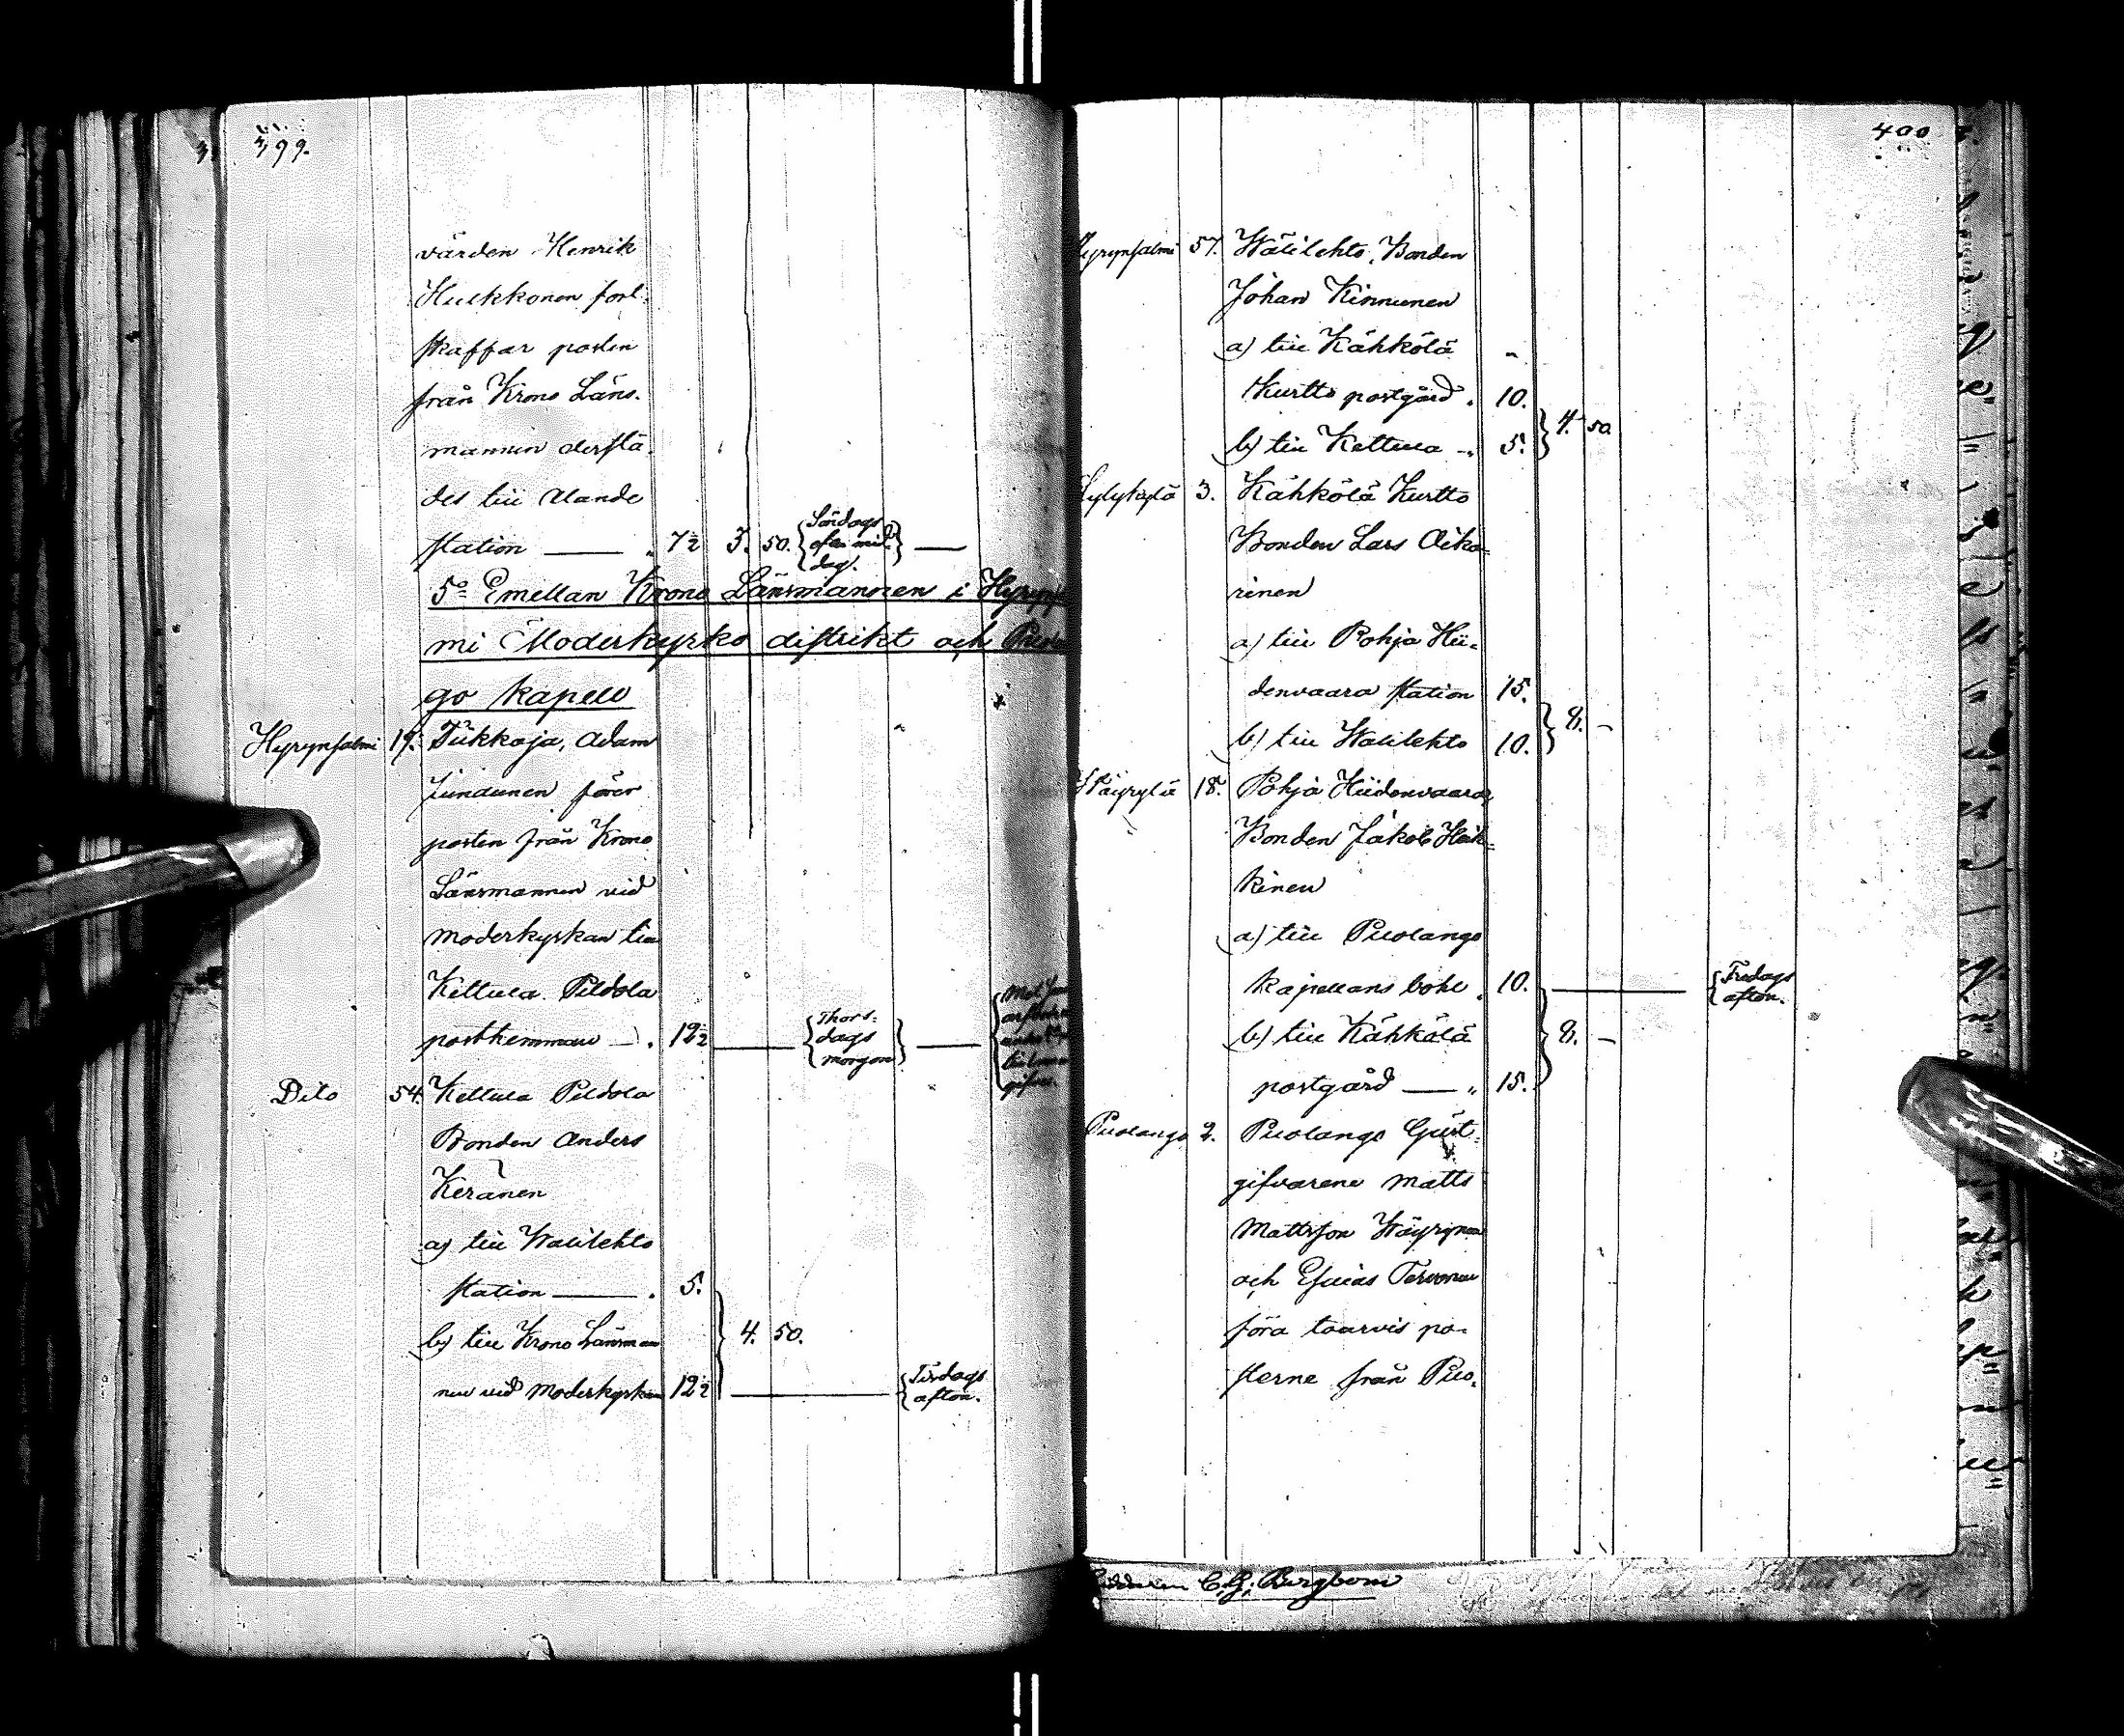 399.
värden Henrik
Hukkonen fort-
skaffar posten
från Krono Läns-
mannen derstä-
des till Alande
station — " 7½ 3. 50. {Söndags efter mid dag.} —
5º Emellan Krono Länsmannen i Hyrynsal
mi Moderkyrko distrikt och Puolan
go kapell
Hyrynsalmi 19. Tükkaja, Adam
Jundunen förer
posten från Krono
Länsmannen vid
moderkyrkan till
Kettula Pildola
posthemman — . 12½ — {Thors- dags morgon} —
Dito 54. Kettula Pildola
Bonden Anders
Keränen
a) till Walilehto
station — . 5.
b) till Krono Länsman
nen vid Moderkyrkan 12½ } 4. 50. — {Tisdags afton.
400
Hyrynsalmi 57. Wälilehto, Bonden
Johan Kinnunen
a) till Kähkölä "
Kurtto postgård . 10.
b) till Kettula - " 5. } 4. 50.
Kylykylä 3. Kähkölä Kurtto
Bonden Lars Oika-
rinen
a) till Pohja Hii-
denvaara station 15.
b) till Walilehto 10. } 8. —
Wäyrylä 18. Pohja Hiidenvaara
Bonden Jakob Heik-
kinen
a) till Puolango
kapellans bohl . 10. — {Fredags afton.
b) till Kähkölä } 8. —
postgård — " 15.
Puolango 2. Puolango Gäst-
gifvarene Matts
Mattsson Wäyrynen
och Esaias Tervonen
föra tourvis po-
sterne från Puo-
C. G. Bergbom